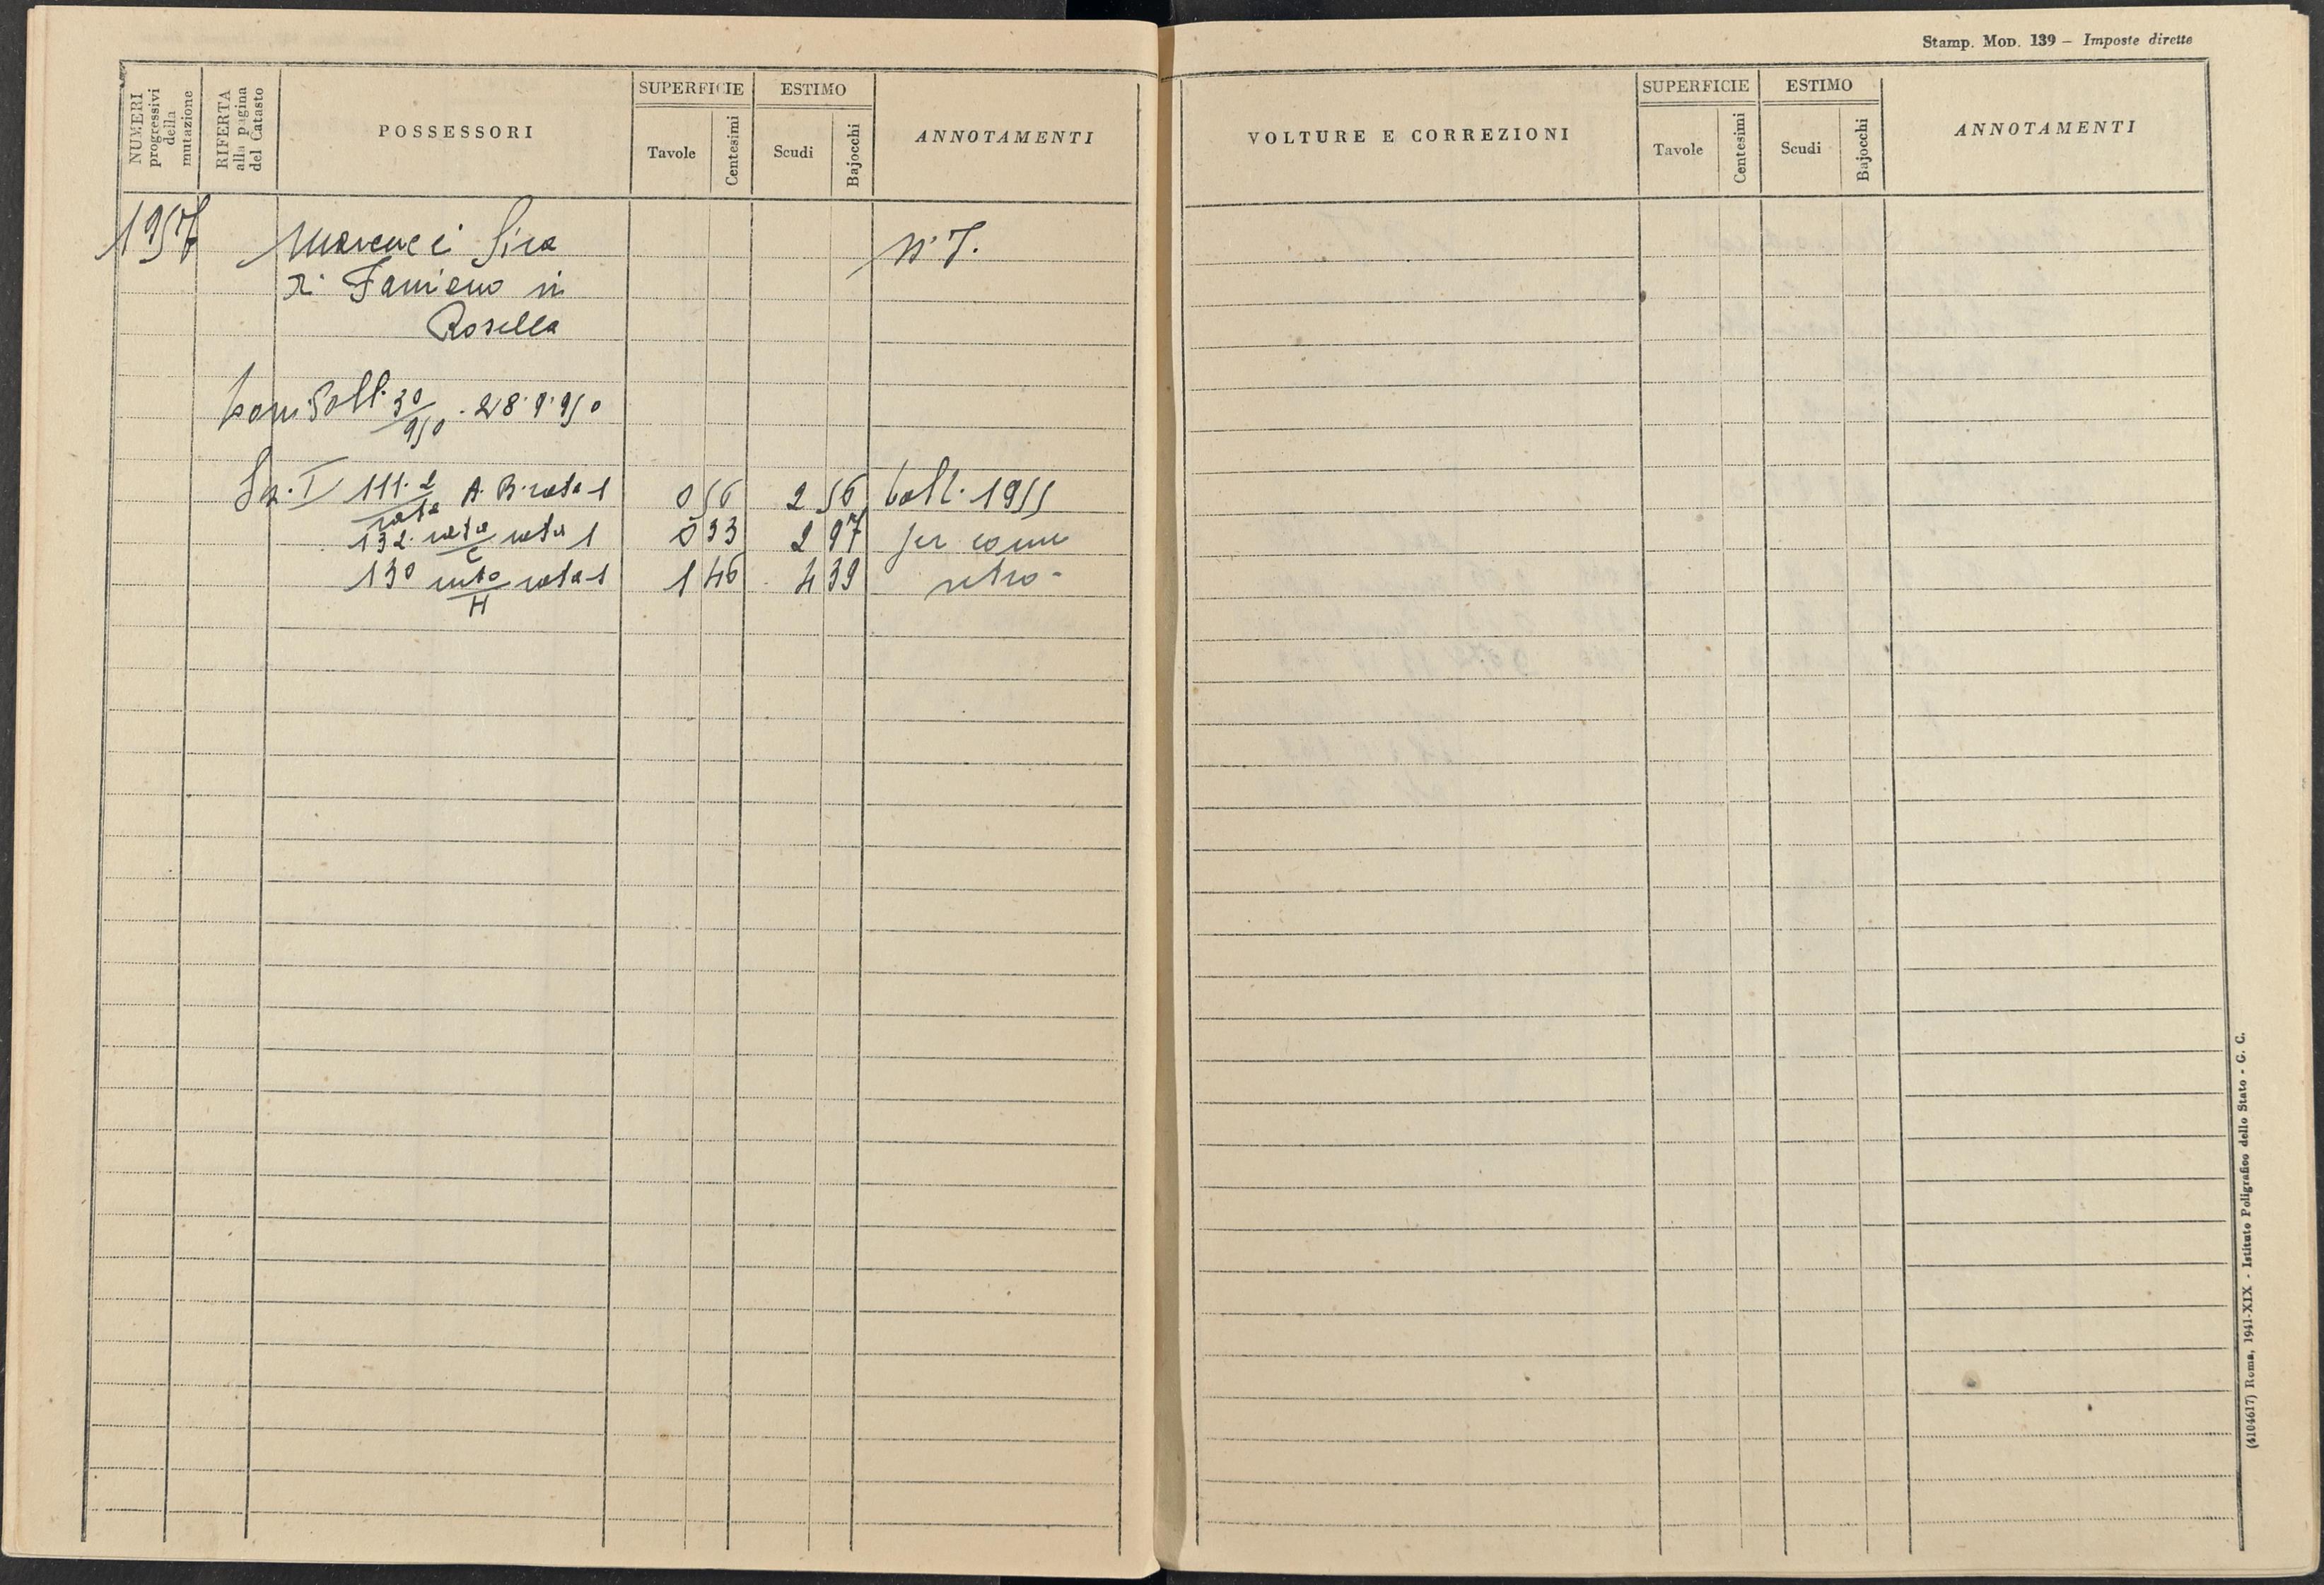 Stamp. Mod. 139 — Imposte dirette
NUMERI progressivi della mutazione
RIFERTA alla pagina del Catasto
POSSESSORI
SUPERFICIE
Tavole
Centesimi
ESTIMO
Scudi
Bajocchi
ANNOTAMENTI
VOLTURE E CORREZIONI
SUPERFICIE
Tavole
Centesimi
ESTIMO
Scudi
Bajocchi
ANNOTAMENTI
1957
N. 7.
Rosella
30/950 . 28.9.950
Sez. I 111.2/rata A. B. rata 1 0 56 2 56 Voll. 1955
132 rata/C rata 1 0 33 2 97 per come
130 rata/H rata 1 1 46 4 39 retro -
(4104617) Roma, 1941-XIX - Istituto Poligrafico dello Stato - G. C.